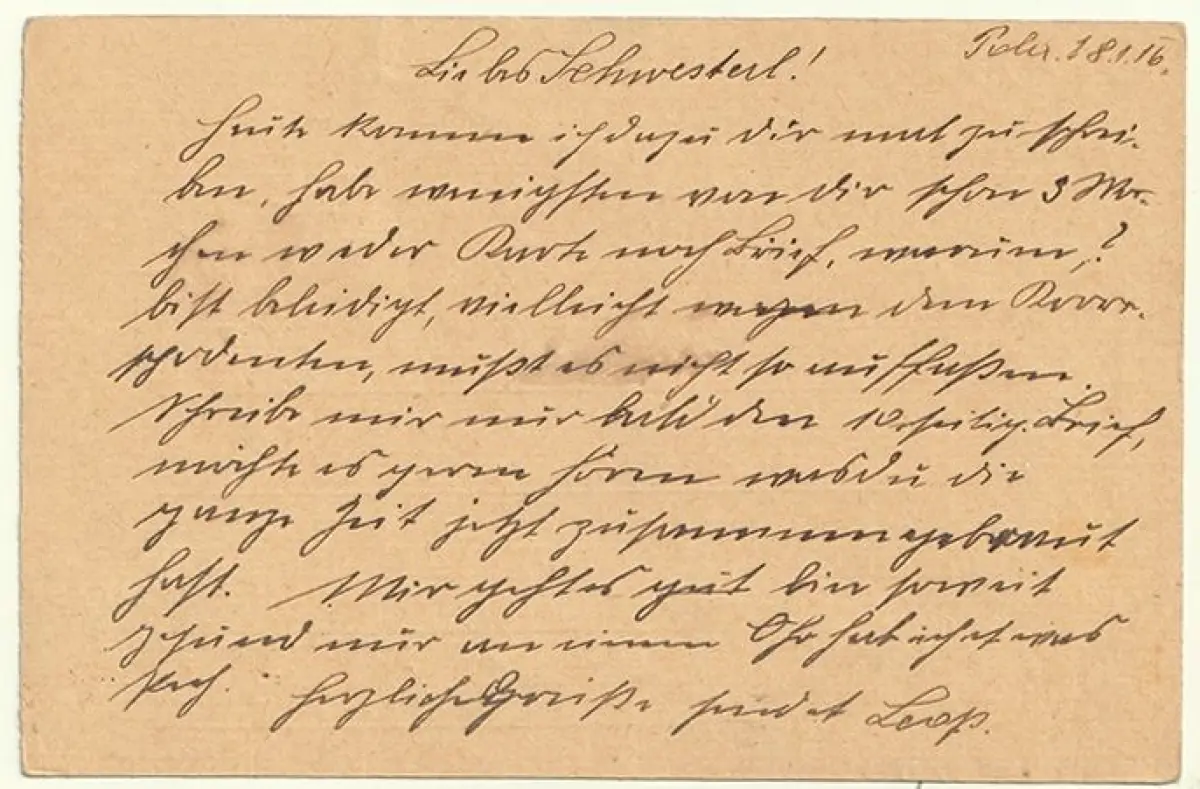 18.1.16.
Liebes Schwesterl!
Heute komme ich dazu dir mal zu schrei-
ben, habe wenigsten von dir schon 3 Wo-
chen weder Karte noch Brief, warum?
bist beleidigt, vielleicht wegen dem Korre-
spodenten, mußt es nicht so auffaßen.
Schreibe mir nur bald den 10.seitig. Brief,
möchte es gern hören was du die
ganze Zeit jetzt zusammengebraut
hast. Mir geht es gut bin soweit
gesund nur an einem Ohr hab ich etwas
Pech. Herzliche Grüße sendet Leop.